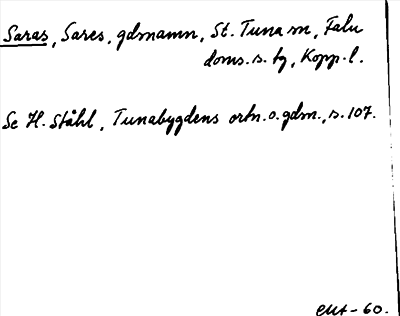 Saras, Sares, gdmamn, St. Tuna sn, Falu
doms. s. tg, Kopp. l.
Se H. Ståhl, Tunabygdens ortn. o. gdm., s. 107.
- 60.